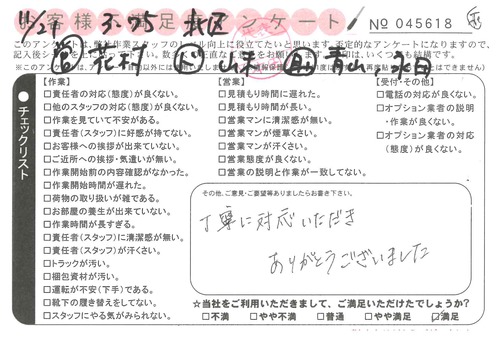 お客様不満足アンケート
№ 045618
11/29 3.75 北区
このアンケートは、弊社作業スタッフのレベル向上に役立てたいと思います。否定的なアンケートになりますので、
チェックリスト
【作業】
□責任者の対応(態度)が良くない。
□他のスタッフの対応(態度)が良くない。
□作業を見ていて不安がある。
□責任者(スタッフ)に好感が持てない。
□お客様への挨拶が出来ていない。
□ご近所への挨拶・気遣いが無い。
□作業開始前の内容確認がなかった。
□作業開始時間が遅れた。
□荷物の取り扱いが雑である。
□お部屋の養生が出来ていない。
□作業時間が長すぎる。
□責任者(スタッフ)に清潔感が無い。
□責任者(スタッフ)が汗くさい。
□トラックが汚い。
□梱包資材が汚い。
□運転が不安(下手)である。
□靴下の履き替えをしてない。
□スタッフにやる気がみられない。
【営業】
□見積もり時間に遅れた。
□見積もり時間が長い。
□営業マンに清潔感が無い。
□営業マンが煙草くさい。
□営業マンが汗くさい。
□営業態度が良くない。
□営業の説明と作業が一致してない。
【受付・その他】
□電話の対応が良くない。
□オプション業者の説明
・作業が良くない。
□オプション業者の対応
(態度)が良くない。
その他、ご意見・ご要望等ありましたらお書き下さい。
丁寧に対応いただき
ありがとうございました
☆当社をご利用いただきまして、ご満足いただけたでしょうか?
□不満 □やや不満 □普通 □やや満足 □満足